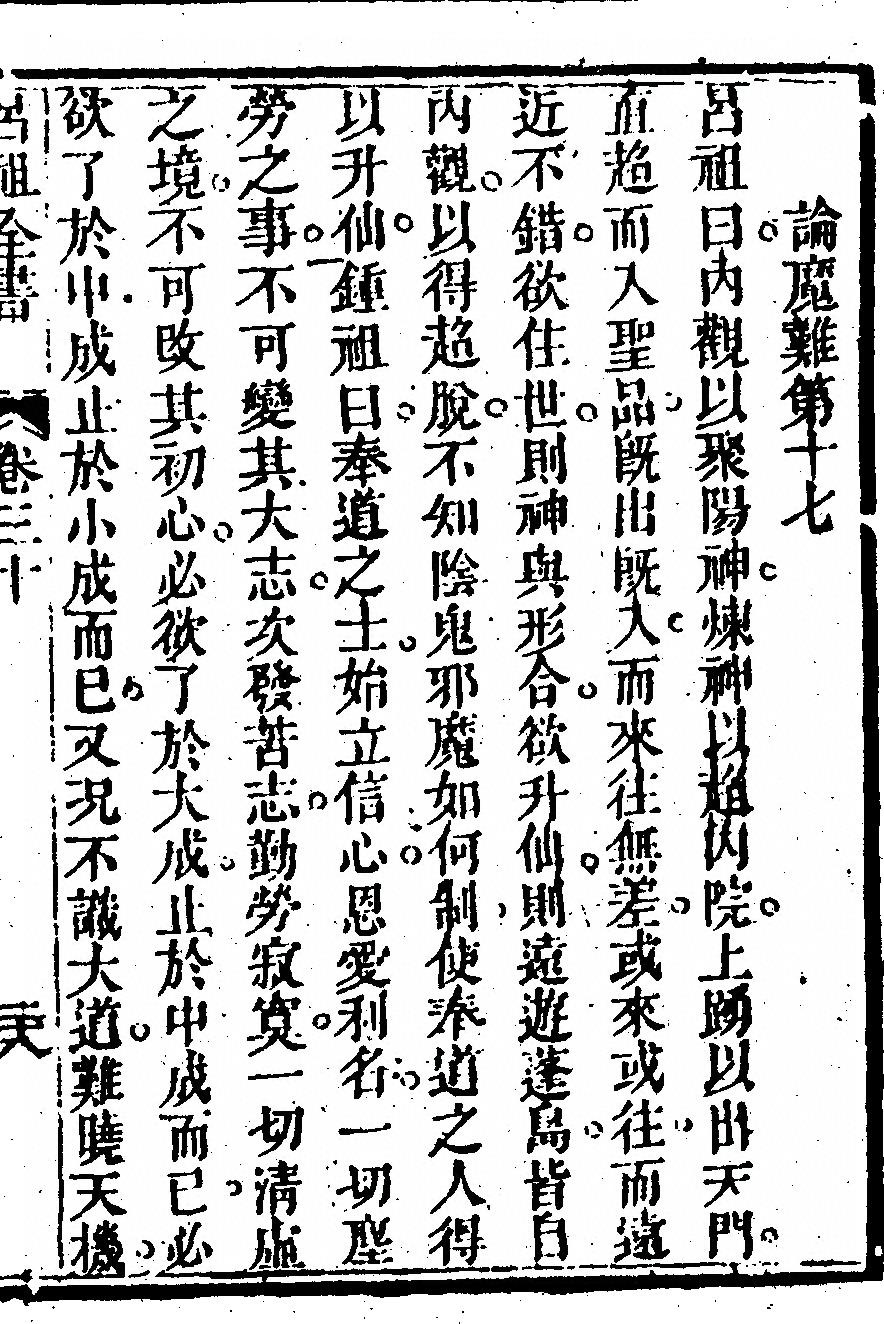 論魔難第十七
呂祖曰內觀以聚陽神煉神以超內院上踴以出天門
直超而入聖品既出既入而來往無差或來或往而遠
近不錯欲住世則神與形合欲升仙則遠遊蓬島皆自
內觀以得超脫不知陰鬼邪魔如何制使奉道之人得
以升仙鍾祖曰奉道之士始立信心恩愛利名一切塵
勞之事不可變其大志次發苦志勤勞寂寞一切清虛
之境不可改其初心必欲了於大成止於中成而已必
欲了於中成止於小成而已又况不識大道難曉天機
呂祖全書 卷三十